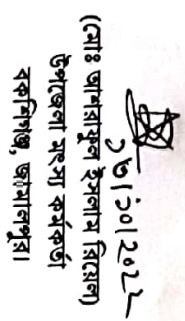 ১৬/১০/২০২২
(মোঃ আশরাফুল ইসলাম রিয়েল)
উপজেলা মৎস্য কর্মকর্তা
বকশিগঞ্জ, জামালপুর।